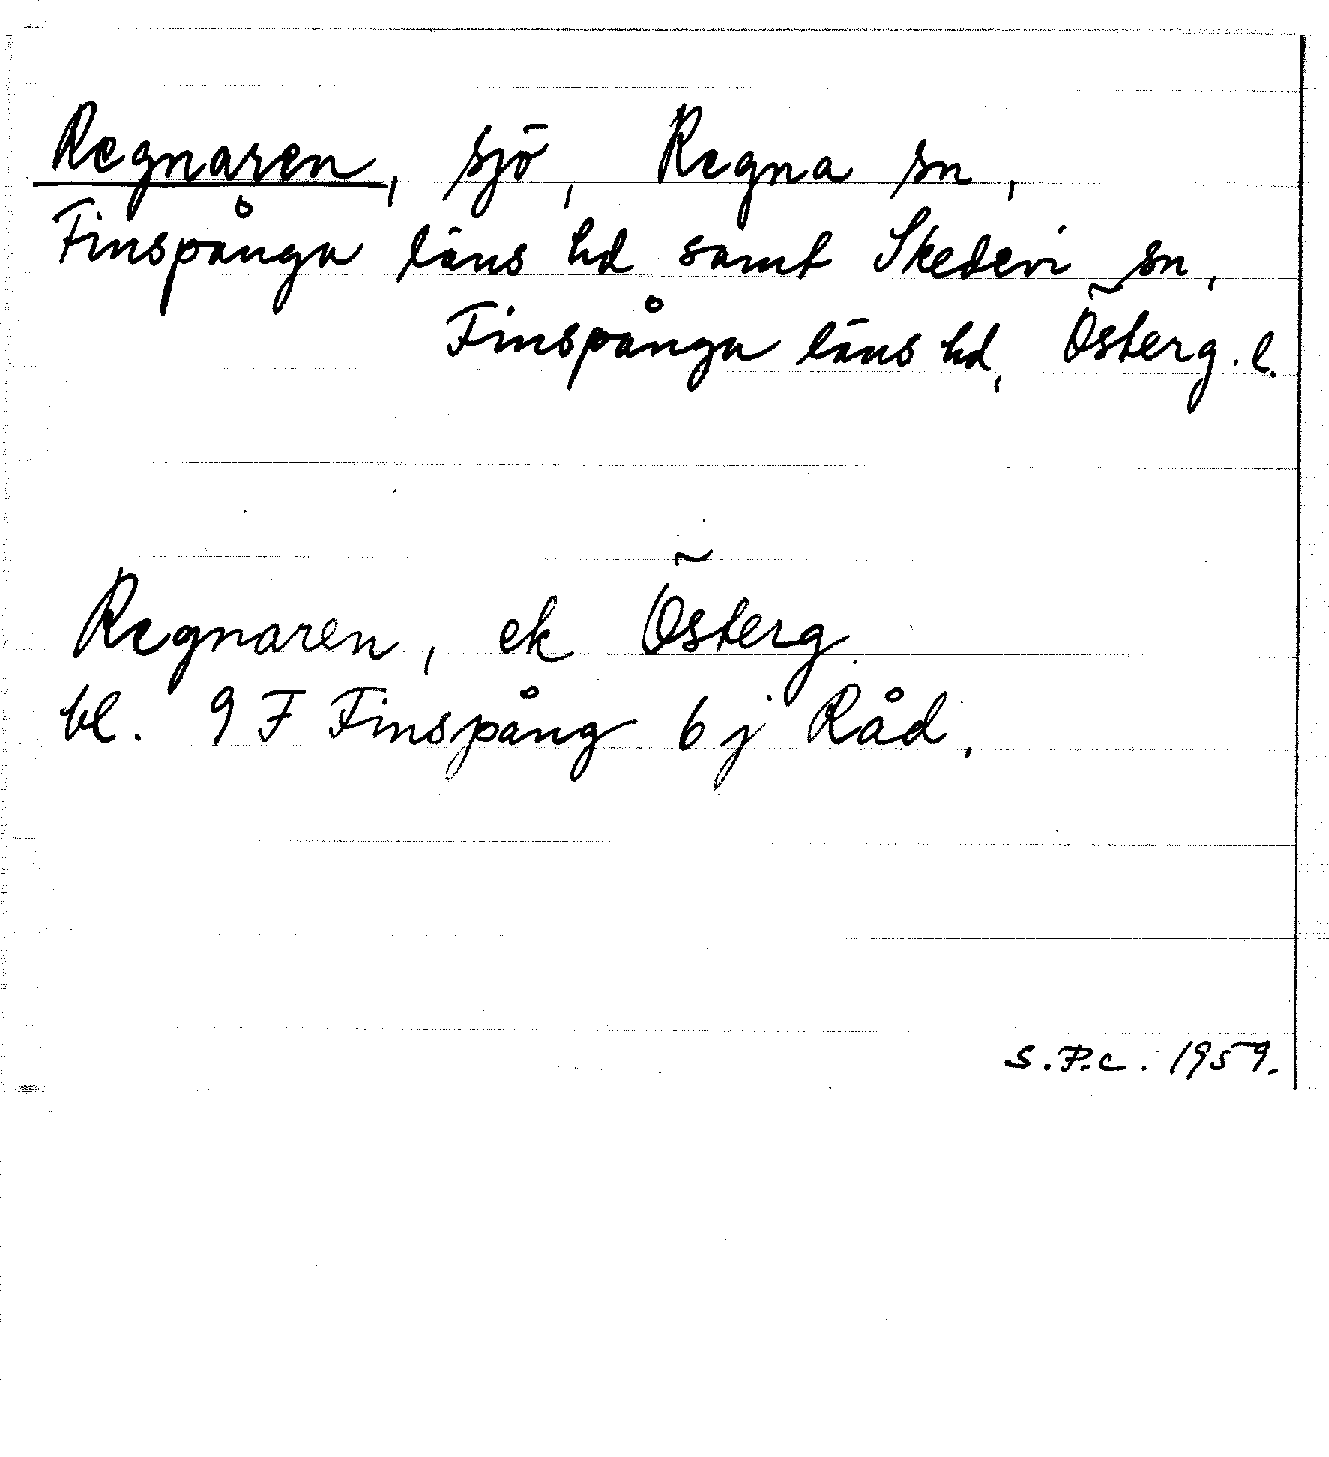 Regnaren, sjö, Regna sn,
Finspånga läns hd samt Skedevi sn,
Finspånga läns hd, Österg. l.
Regnaren, ek Österg.
bl. 9 F Finspång 6 j Råd.
S.P.C. 1959.